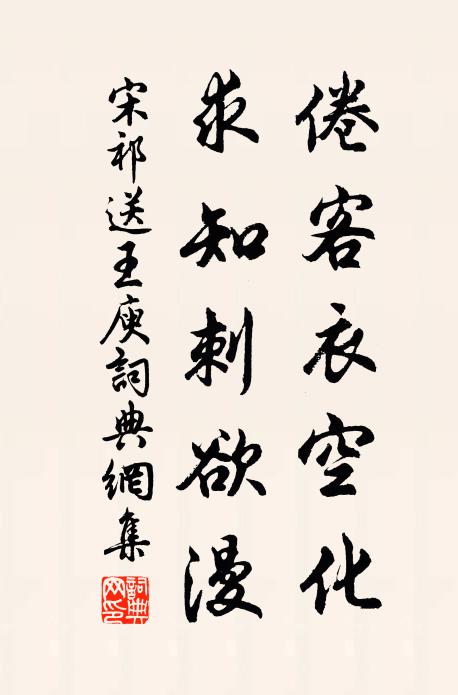 倦客衣空化
求知刺欲漫
宋祁送王庾詞典網集
詞典網印